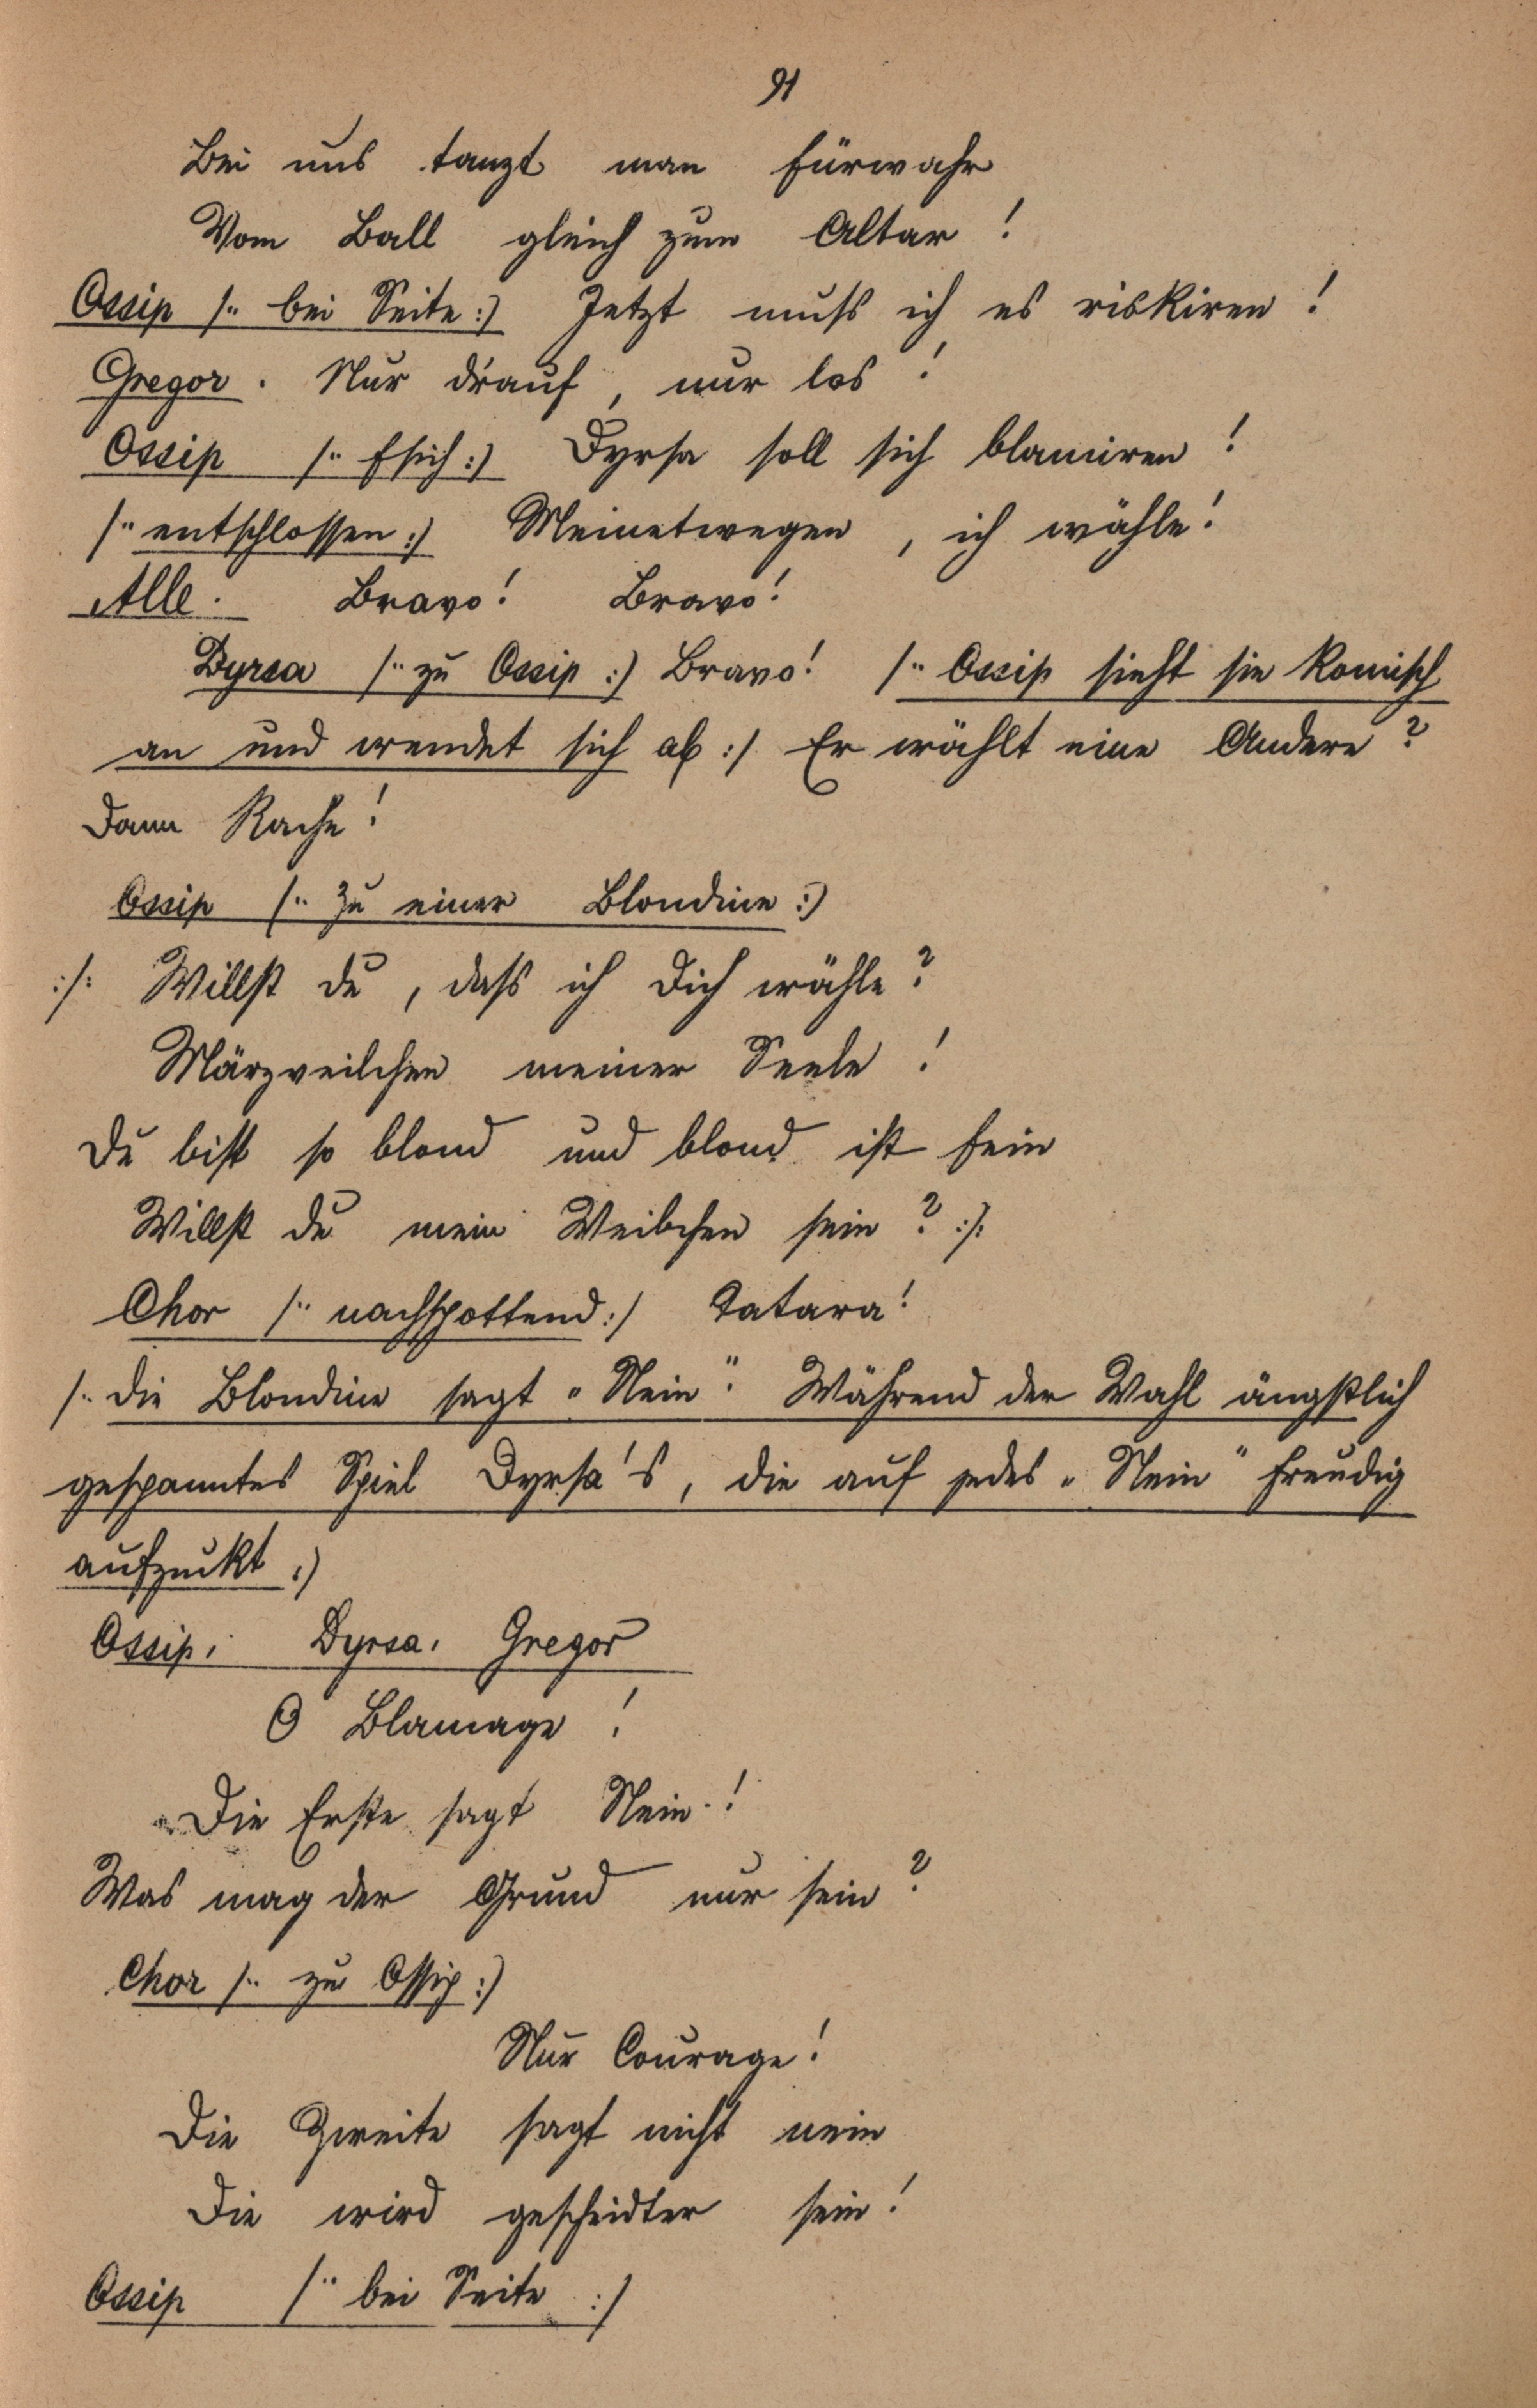 91
Bei uns tanzt man fürwahr
Vom Ball gleich zum Altar!
Ossip /: bei Seite :/ Jetzt muss ich es riskiren!
Gregor. Nur d'rauf, nur los!
Ossip /: f sich :/ Dyrsa soll sich blamiren!
/: entschlossen :/ Meinetwegen, ich wähle!
Alle. Bravo! Bravo!
Dyrsa /: zu Ossip :/ Bravo! /: Ossip sieht sie komisch
an und wendet sich ab :/ Er wählt eine Andere?
Dann Rache!
Ossip /: zu einer Blondine :/
:/: Willst du, dass ich Dich wähle?
Märzveilchen meiner Seele!
Du bist so blond und blond ist fein
Willst du mein Weibchen sein? :/:
Chor /: nachspottend :/ Tatara!
/: Die Blondine sagt „Nein". Während der Wahl ängstlich
gespanntes Spiel Dyrsa's, die auf jedes „Nein" freudig
aufzuckt :/
Ossip. Dyrsa. Gregor
O Blamage!
Die Erste sagt Nein!
Was mag der Grund nur sein?
Chor /: zu Ossip :/
Nur Courage!
Die Zweite sagt nicht nein
Die wird gescheidter sein!
Ossip /: bei Seite :/